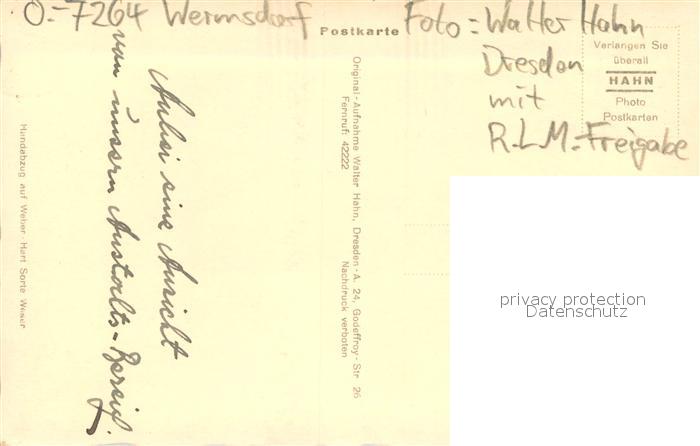 O.-7264 Wermsdorf
Postkarte
Foto = Walter Hahn
Dresden
mit
R.L.M.-Freigabe
Verlangen Sie
überall
HAHN
Photo
Postkarten
Original-Aufnahme Walter Hahn, Dresden-A. 24, Godeffroy-Str 26
Fernruf: 42222
Nachdruck verboten
Anbei eine Ansicht
von unserm Anstalts-Bereich.
Handabzug auf Weber-Hart Sorte Weser
privacy protection
Datenschutz